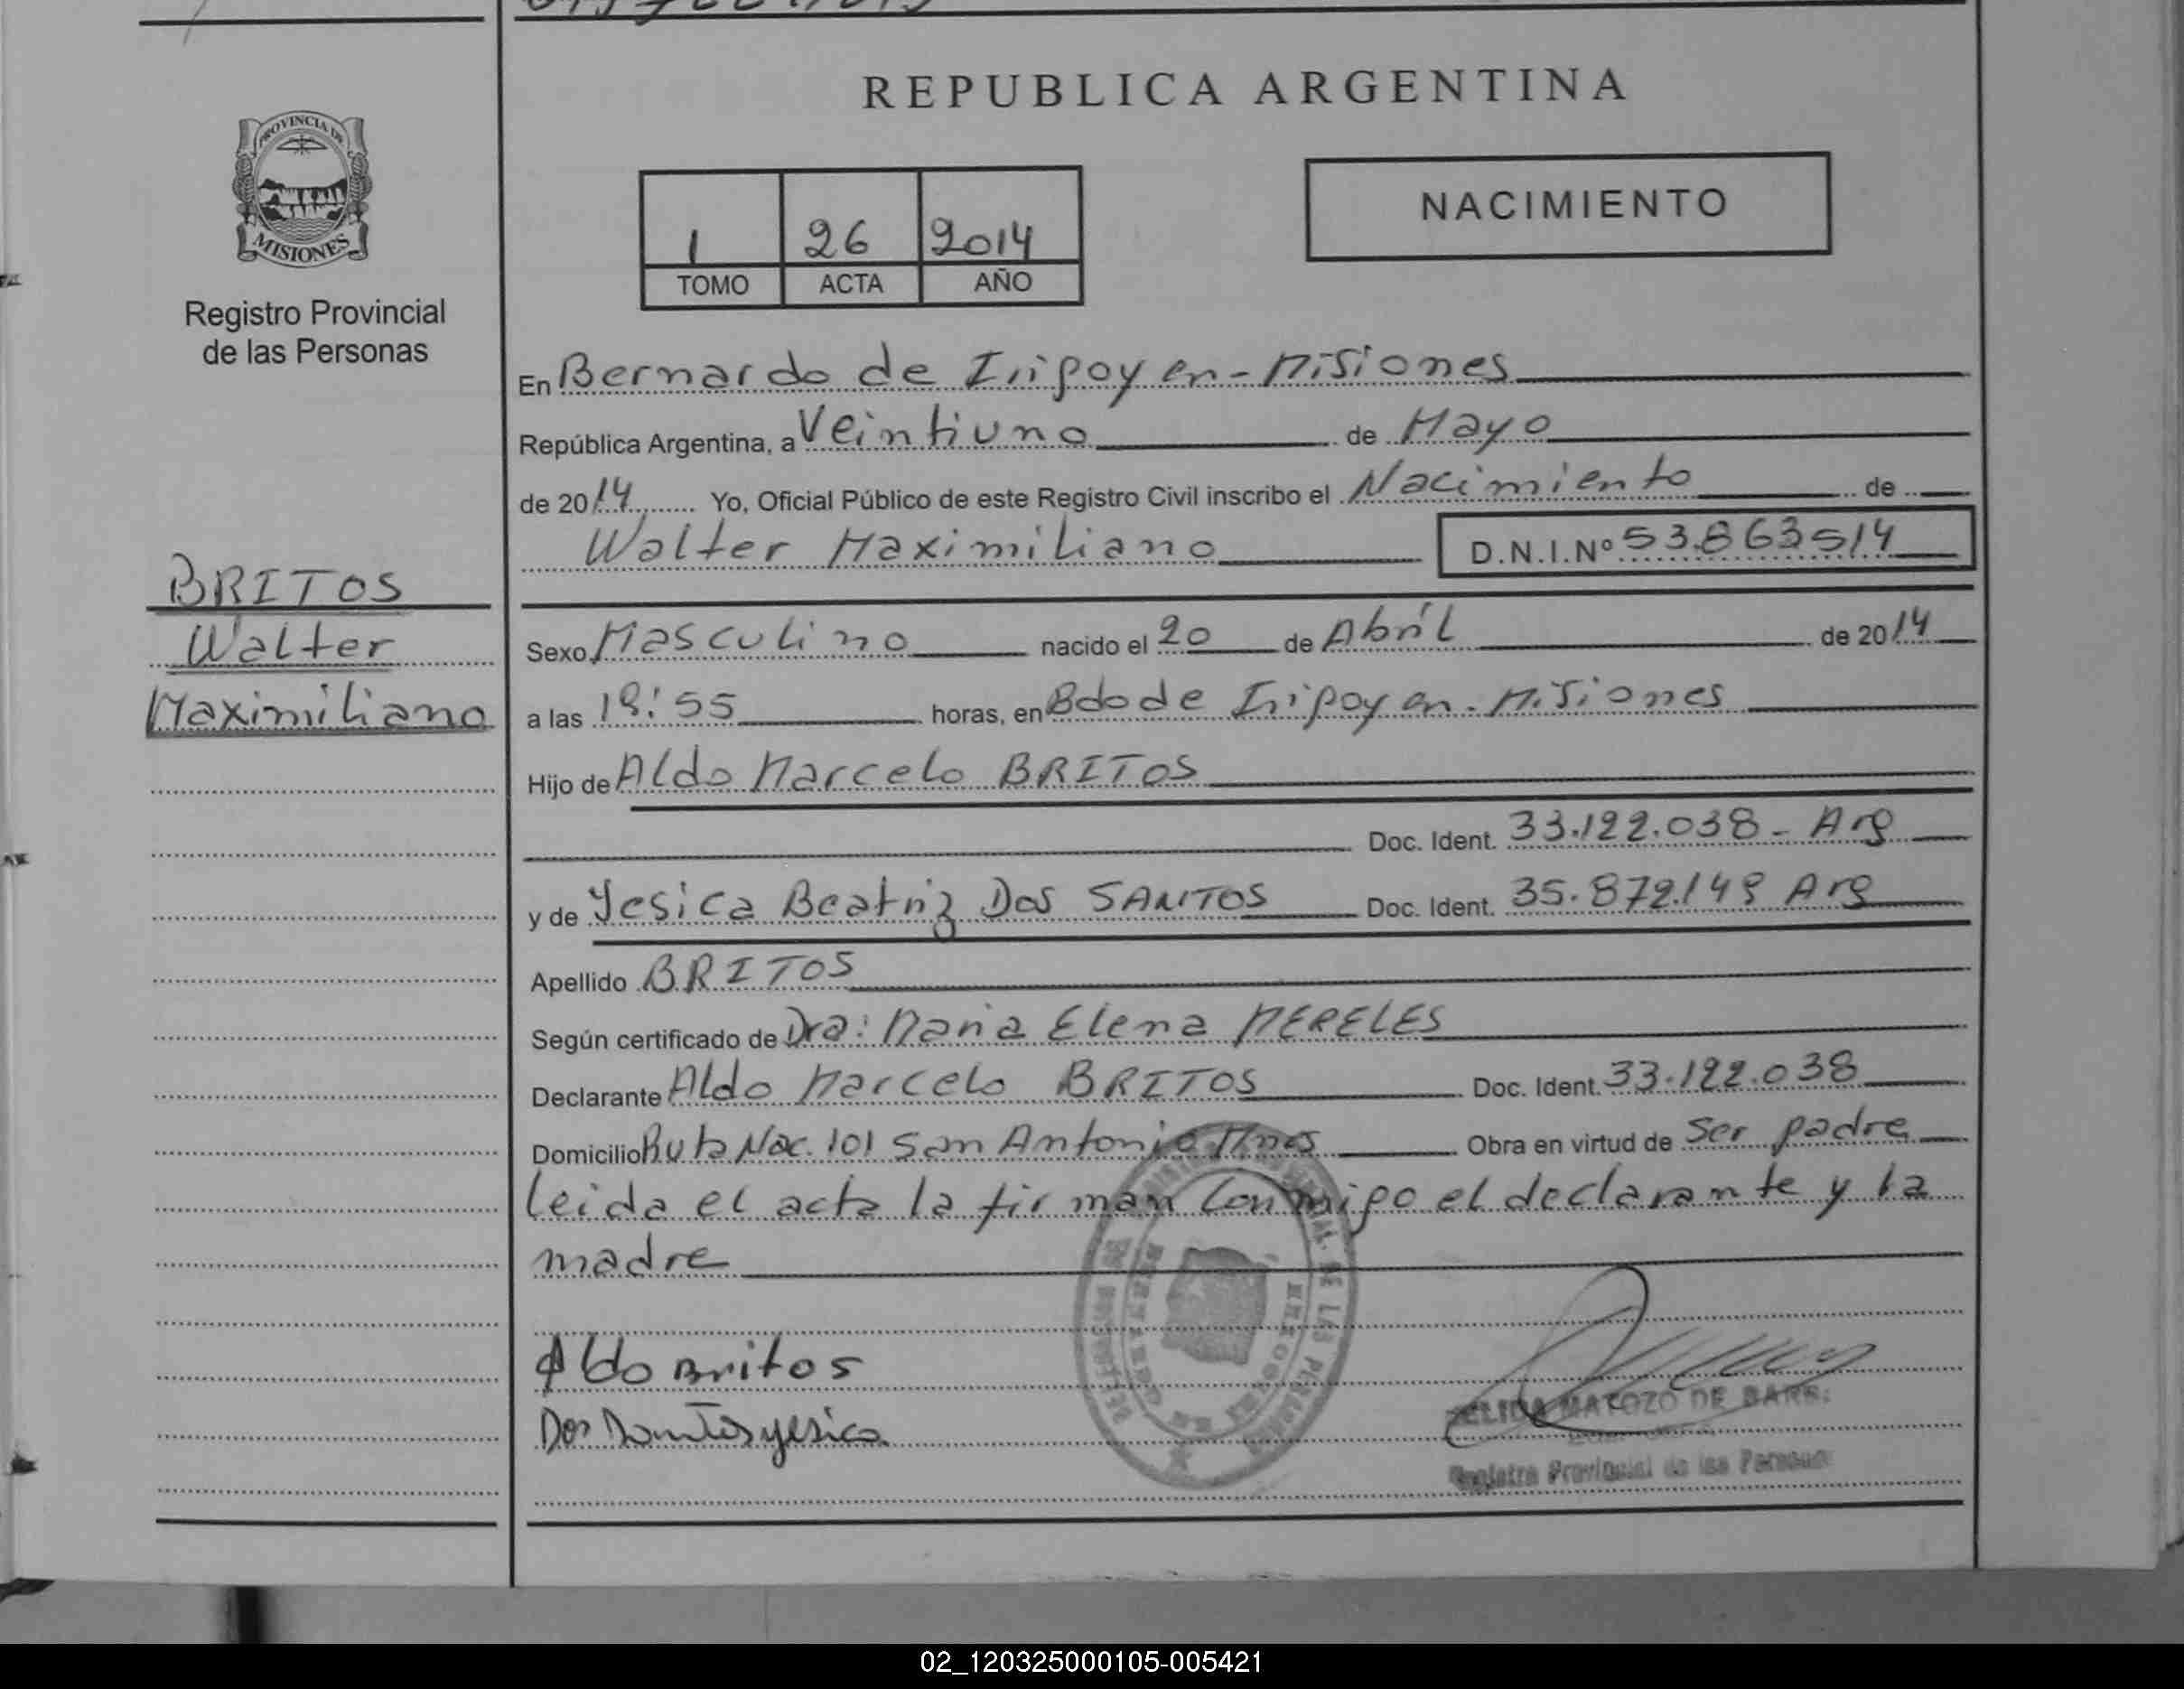 REPUBLICA ARGENTINA
PROVINCIA DE
MISIONES
Registro Provincial
de las Personas
1 26 2014
TOMO ACTA AÑO
NACIMIENTO
En Bernardo de Irigoyen - Misiones
República Argentina, a Veintiuno de Mayo
de 2014 Yo, Oficial Público de este Registro Civil inscribo el Nacimiento de
Walter Maximiliano D.N.I.Nº 53.863514
BRITOS
Walter
Maximiliano
Sexo Masculino nacido el 20 de Abril de 2014
a las 18:55 horas, en Bdo de Irigoyen - Misiones
Hijo de Aldo Marcelo BRITOS
Doc. Ident. 33.122.038 - Arg
y de Yesica Beatriz Dos SANTOS Doc. Ident. 35.872.148 Arg
Apellido BRITOS
Según certificado de Dra: Maria Elena MERELES
Declarante Aldo Marcelo BRITOS Doc. Ident. 33.122.038
Domicilio Ruta Nac. 101 San Antonio Mnes Obra en virtud de ser padre
leida el acta la firman conmigo el declarante y la
madre
Aldo Britos
Dos Santos yesica
MATOZO DE
Registro Provincial de las Personas
02_120325000105-005421